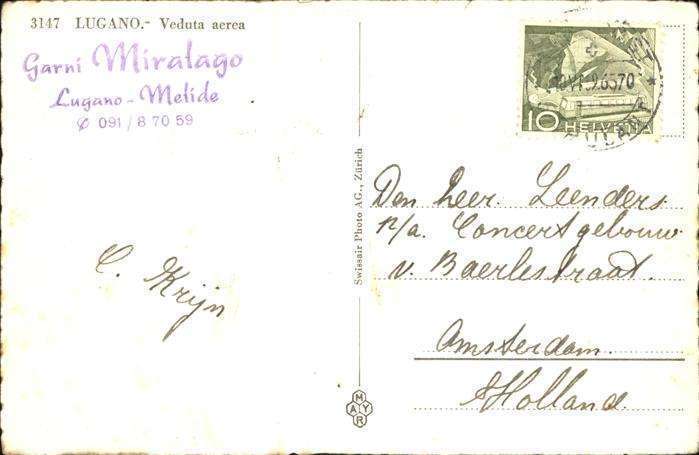 3147 LUGANO.- Veduta aerea
Garni Miralago
Lugano - Melide
✆ 091 / 8 70 59
C. Krijn
Swissair Photo AG., Zürich
MAYR
10 HELVETIA
Den heer. Leenders.
p/a. Concertgebouw.
v. Baerlestraat.
Amsterdam.
Holland.